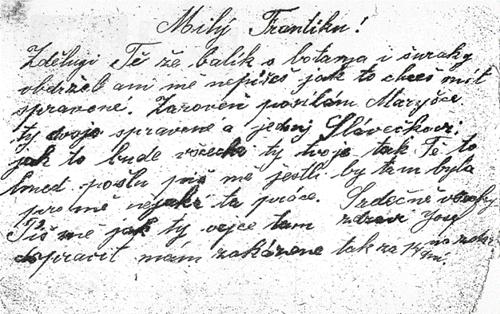 Milý Frantíku!
Zděluji Tě že balík s botama i šuraky
obdržel ani mě nepíšeš jak to chceš mít
spravené. Zároveň posílám Maryšce
ty dvoje spravene a jedny Sláveckovi,
jak to bude všecko ty tvoje tak Tě to
hned pošlu piš mě jestli by tam byla
pro mě nejaka ta práce. Srdečně všecky
Piš mě jak ty vejce tam zdraví
dopravit mám zakázene tak za 14 dní.